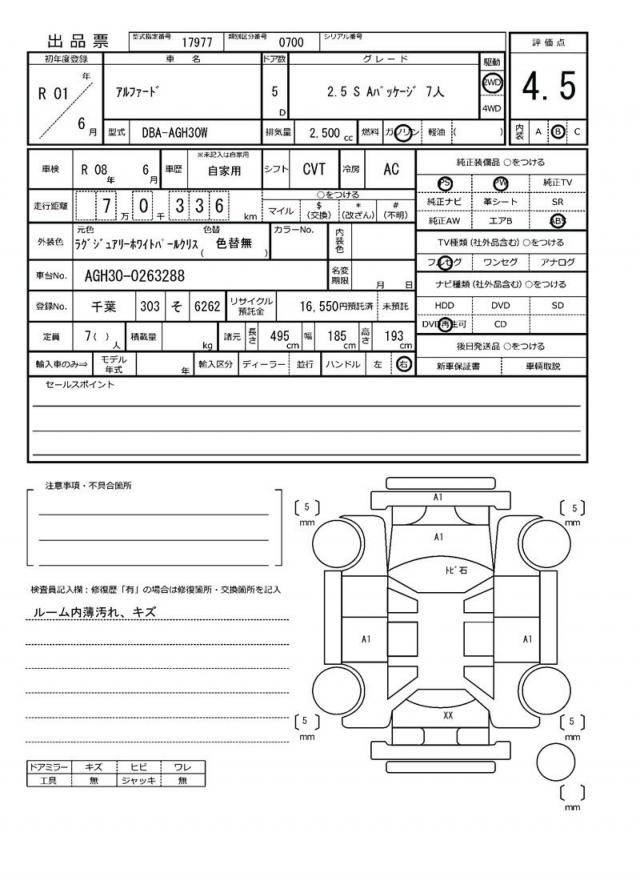 出品票 型式指定番号 17977 類別区分番号 0700 シリアル番号
評価点
4.5
内装 A B C
初年度登録 車名 ドア数 グレード 駆動
R 01 年 6 月 アルファード 5 D 2.5 S Aパッケージ 7人 2WD 4WD
型式 DBA-AGH30W 排気量 2,500 cc 燃料 ガソリン 軽油 ( )
車検 R 08 年 6 月 車歴 ※未記入は自家用 自家用 シフト CVT 冷房 AC
走行距離 7 万 0 千 336 km
○をつける
マイル $ (交換) * (改ざん) # (不明)
外装色 元色 ラグジュアリーホワイトパールクリス 色替 ( 色替無 ) カラーNo. 内装色
車台No. AGH30-0263288 名変期限 月 日
登録No. 千葉 303 そ 6262 リサイクル預託金 16,550円預託済 未預託
定員 7( ) 人 積載量 kg 諸元 長さ 495 cm 幅 185 cm 高さ 193 cm
輸入車のみ⇒ モデル年式 年 輸入区分 ディーラー 並行 ハンドル 左 右
純正装備品 ○をつける
PS PW 純正TV
純正ナビ 革シート SR
純正AW エアB ABS
TV種類(社外品含む) ○をつける
フルセグ ワンセグ アナログ
ナビ種類(社外品含む) ○をつける
HDD DVD SD
DVD再生可 CD
後日発送品 ○をつける
新車保証書 車輌取説
セールスポイント
注意事項・不具合箇所
検査員記入欄:修復歴「有」の場合は修復箇所・交換箇所を記入
ルーム内薄汚れ、キズ
ドアミラー キズ ヒビ ワレ
工具 無 ジャッキ 無
A1
[ 5 ] mm
[ 5 ] mm
A1
トビ石
A1
A1
XX
[ 5 ] mm
[ 5 ] mm
[ ] mm